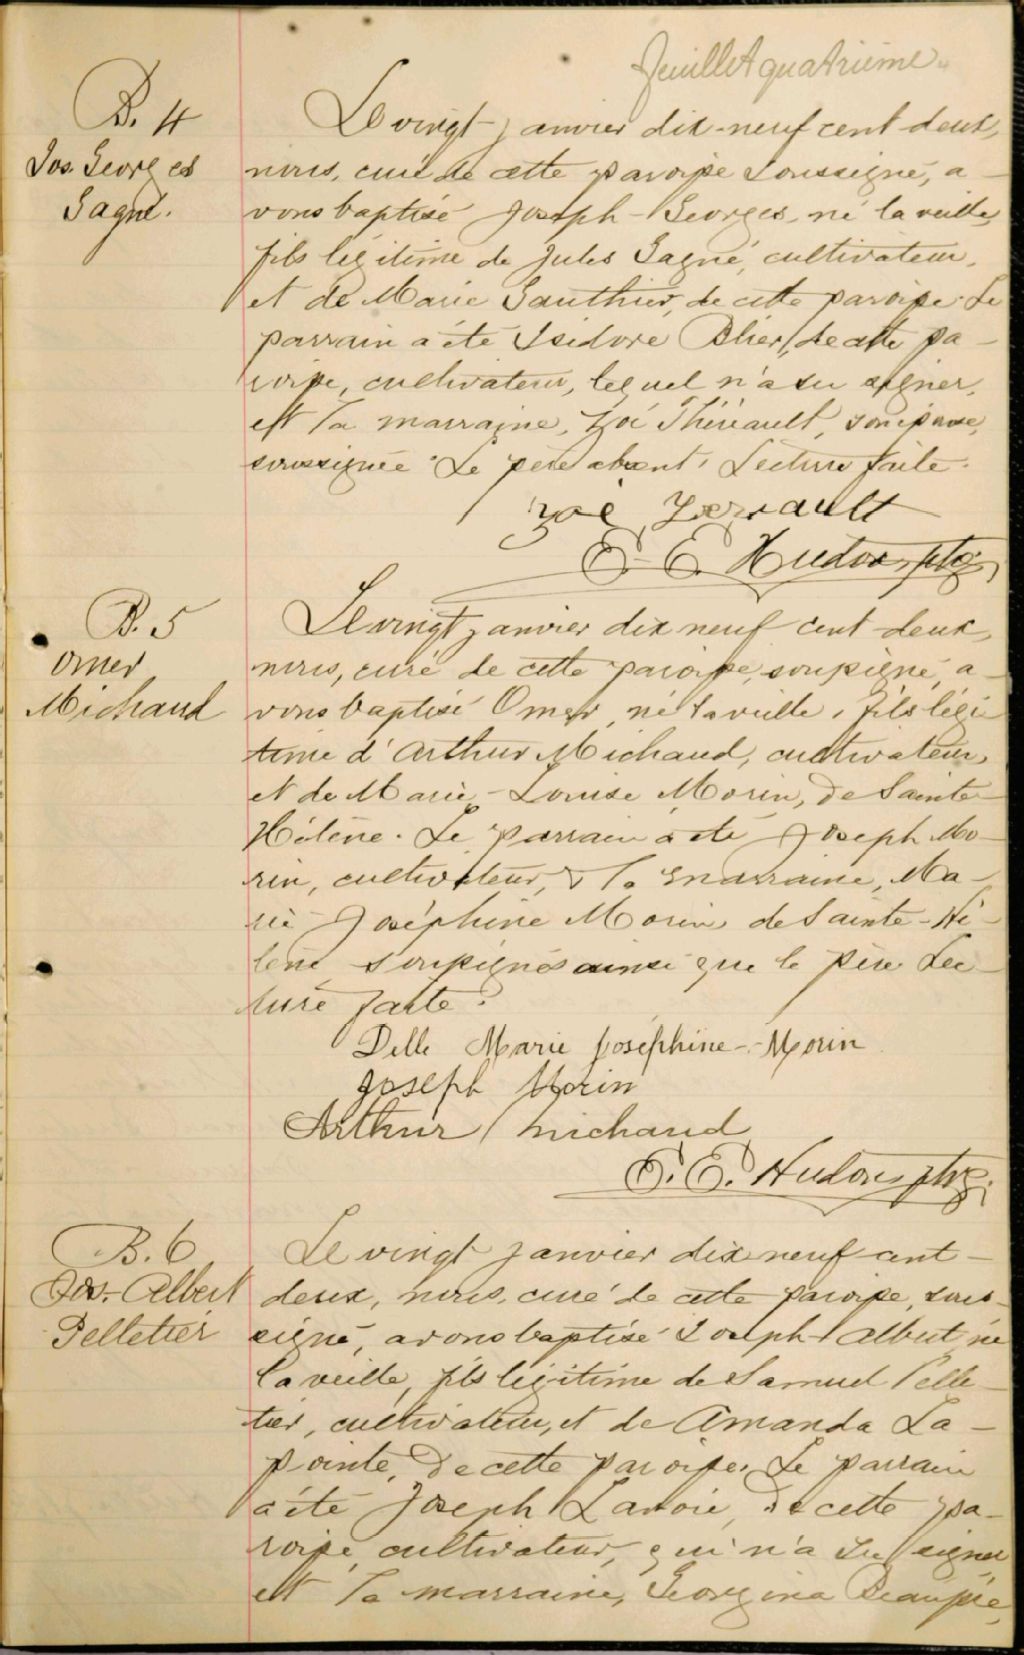 feuillet quatrième
B. 4
Jos. Georges
Gagné.
Le vingt janvier dix-neuf cent deux,
nous, curé de cette paroisse soussigné, a-
vons baptisé Joseph-Georges, né la veille,
fils légitime de Jules Gagné, cultivateur,
et de Marie Gauthier, de cette paroisse. Le
parrain a été Isidore Blier, de cette pa-
roisse, cultivateur, lequel n'a su signer,
et la marraine, Zoé Thériault, son épouse,
soussignée. Le père absent. Lecture faite.
Zoé Terrault
E. E. Hudon, ptre
B. 5
Omer
Michaud
Le vingt janvier dix neuf cent deux,
nous, curé de cette paroisse, soussigné, a-
vons baptisé Omer, né la veille, fils légi-
time d'Arthur Michaud, cultivateur,
et de Marie-Louise Morin, de Sainte
Hélène. Le parrain a été Joseph Mo-
rin, cultivateur, & la marraine, Ma-
rie-Joséphine Morin, de Sainte-Hé-
lène soussignés ainsi que le père. Lec-
ture faite.
Delle Marie Joséphine-Morin
Joseph Morin
Arthur Michaud
E. E. Hudon, ptre.
B. 6
Jos. Albert
Pelletier
Le vingt janvier dix neuf cent-
deux, nous, curé de cette paroisse, sous-
signé, avons baptisé Joseph Albert, né
la veille, fils légitime de Samuel Pelle-
tier, cultivateur, et de Amanda La-
pointe, de cette paroisse. Le parrain
a été Joseph Lavoie, de cette pa-
roisse, cultivateur, qui n'a su signer
et la marraine, Georgina Beaupré,